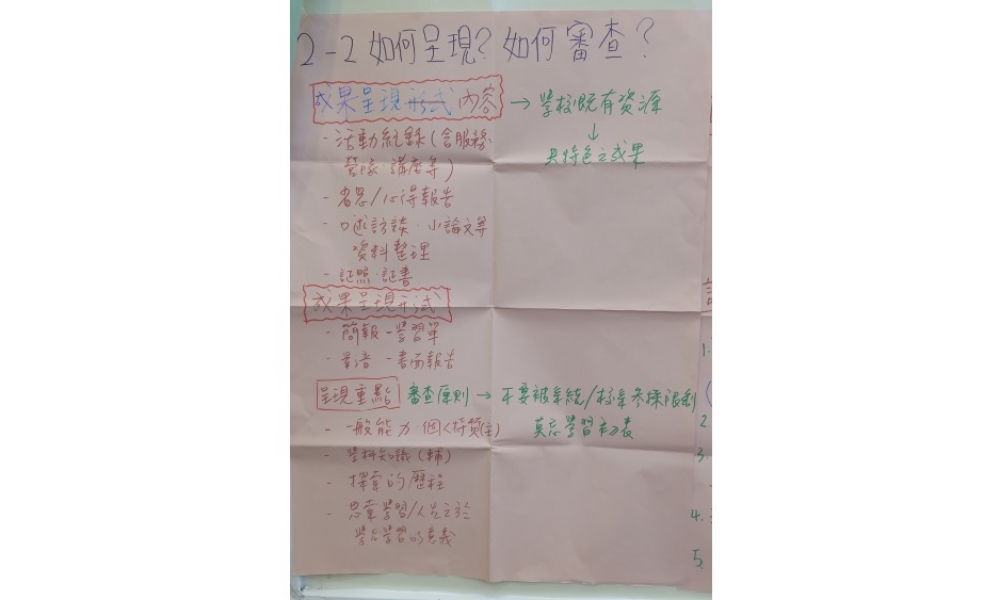 2-2 如何呈現? 如何審查?
成果呈現形式內容 → 學校既有資源
↓
具特色之成果
- 活動紀錄(含服務.
營隊.講座等)
- 省思/心得報告
- 口述訪談.小論文等
資料整理
- 証照.証書
成果呈現形式
- 簡報 - 學習單
- 影音 - 書面報告
呈現重點 審查原則 → 不要被系統/校系參採限制
莫忘學習初衷
- 一般能力.個人特質(主)
- 學科知識(輔)
- 探索的歷程
- 思索學習/人生之於
學習的意義
1.
2.
3.
4.
5.